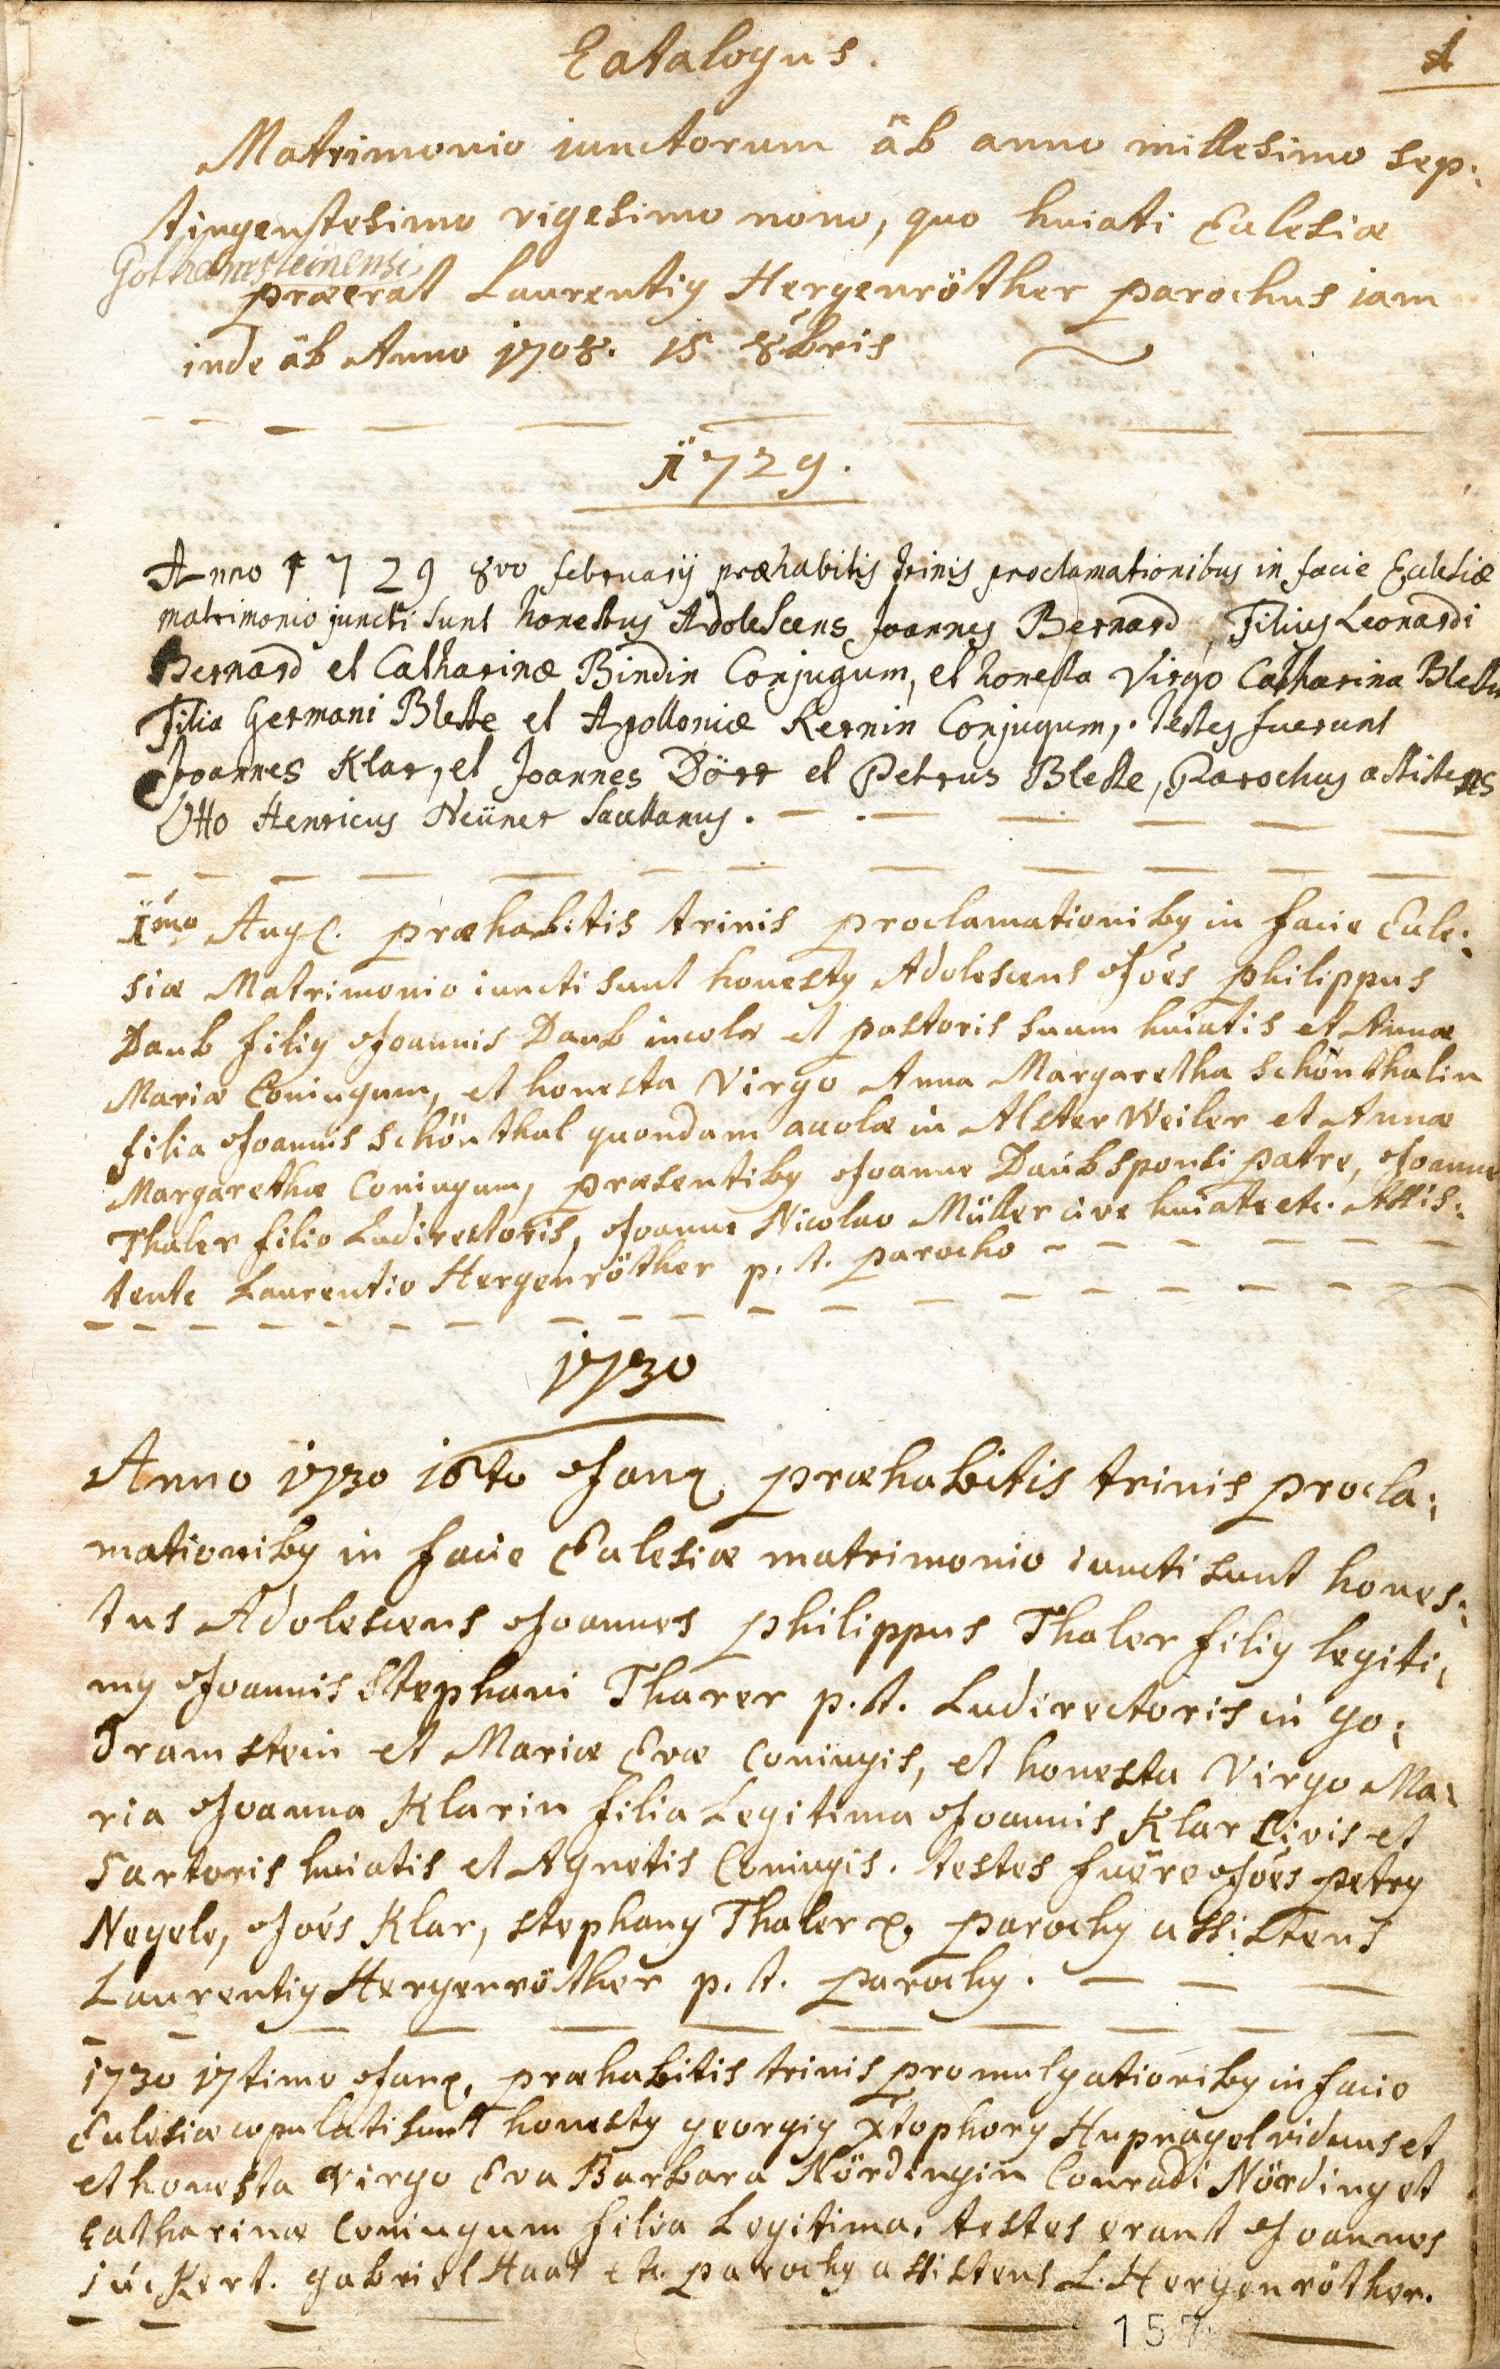 Catalogus. 1
Matrimonio iunctorum ab anno millesimo sep:
tingentesimo vigesimo nono, quo huiati Eccle̅siæ
Gothramsteinensi
præerat Laurentig Hergenröther parochus iam
inde ab Anno 1708. 15 8bris
1729.
Anno 1729 8vo februarij præhabitis trinis proclamationibus in facie Ecclesiæ
matrimonio juncti sunt honestus Adolescens Joannes Bernard, Filius Leonardi
Bernard et Catharinæ Bindin Conjugum, et honesta Virgo Catharina
Filia Germani Blesse et Apolloniæ Kernin Conjugum, Testes fuerunt
Joannes Klar, et Joannes Dörr et Petrus Blesse, Parochus assistens
Otto Henricus Neüner Sacellanus.
1mo Aug. præhabitis trinis proclamationibg in facie Eccle:
siæ Matrimonio iuncti sunt honestg Adolescens Joe̅s philippus
Daub filig Joannis Daub incolæ et pastoris suum huiatis et Annæ
Mariæ Coniugum, et honesta Virgo Anna Margaretha Schönthalin
filia Joannis Schönthal quondam accolæ in Alster Weiler et Annæ
Margarethæ Coniugum, præsentibg Joanne Daub sponsi patre, Joanne
Thaler filio Ludirectoris, Joanne Nicolao Müller cive huiate etc. Assis:
tente Laurentio Hergenröther p. t. parocho
1730
Anno 1730 16to Jan. præhabitis trinis procla:
mationibg in facie Ecclesiæ matrimonio iuncti sunt hones:
tus Adolescens Joannes philippus Thaler filig legiti:
mg Joannis Stephani Tharer p. t. Ludirectoris in go:
dramstein et Mariæ Evæ Coniugis, et honesta Virgo Ma:
ria Joanna Klarin filia Legitima Joannis Klar Civis et
Sartoris huiatis et Agnetis Coniugis. testes fuere Joe̅s petrg
Negele, Joe̅s Klar, Stephang Thaler parochg assistens
Laurentig Hergenröther p. t. parochg.
1730 17timo Jan. præhabitis trinis promulgationibg in facie
Ecclesiæ copulati sunt honestg georgig xtophorg Hupnagel viduus et
et honesta Virgo Eva Barbara Nördingin Conradi Nörding et
Catharinæ Coniugum filia Legitima, testes erant Joannes
gabriel Haas etc. parochg assistens L. Hergenröther.
157